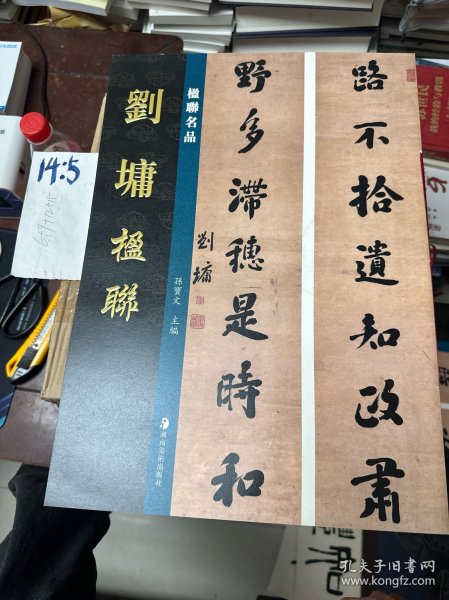 路不拾遺知政肅
野多滯穗是時和
劉墉
楹聯名品
劉墉楹聯
孫寶文 主編
湖南美術出版社
14:5
孔夫子旧书网
www.kongfz.com